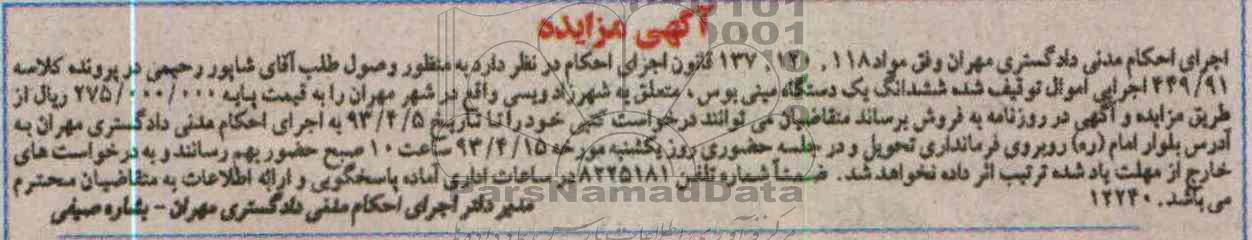 آگهی مزایده
اجرای احکام مدنی دادگستری مهران وفق مواد ۱۱۸، ۱۲۰، ۱۳۷ قانون اجرای احکام در نظر دارد به منظور وصول طلب آقای شاپور رحیمی در پرونده کلاسه
۴۴۹/۹۱ اجرایی اموال توقیف شده ششدانگ یک دستگاه مینی بوس، متعلق به شهرزاد ویسی واقع در شهر مهران را به قیمت پایه ۲۷۵/۰۰۰/۰۰۰ ریال از
طریق مزایده و آگهی در روزنامه به فروش برساند متقاضیان می توانند درخواست کتبی خود را تا تاریخ ۹۳/۴/۵ به اجرای احکام مدنی دادگستری مهران به
آدرس بلوار امام (ره) روبروی فرمانداری تحویل و در جلسه حضوری روز یکشنبه مورخه ۹۳/۴/۱۵ ساعت ۱۰ صبح حضور بهم رسانند و به درخواست های
خارج از مهلت یاد شده ترتیب اثر داده نخواهد شد. ضمناً شماره تلفن ۸۲۲۵۱۸۱ در ساعات اداری آماده پاسخگویی و ارائه اطلاعات به متقاضیان محترم
می باشد. ۱۲۲۴۰
مدیر دفتر اجرای احکام مدنی دادگستری مهران - بشاره صیفی
ParsNamadData